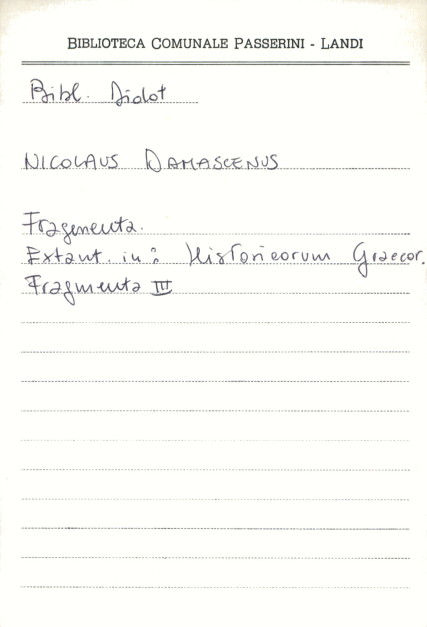 BIBLIOTECA COMUNALE PASSERINI - LANDI
Bibl. Didot
NICOLAUS DAMASCENUS
Fragmenta.
Extant. in: Historicorum Graecor.
Fragmenta III